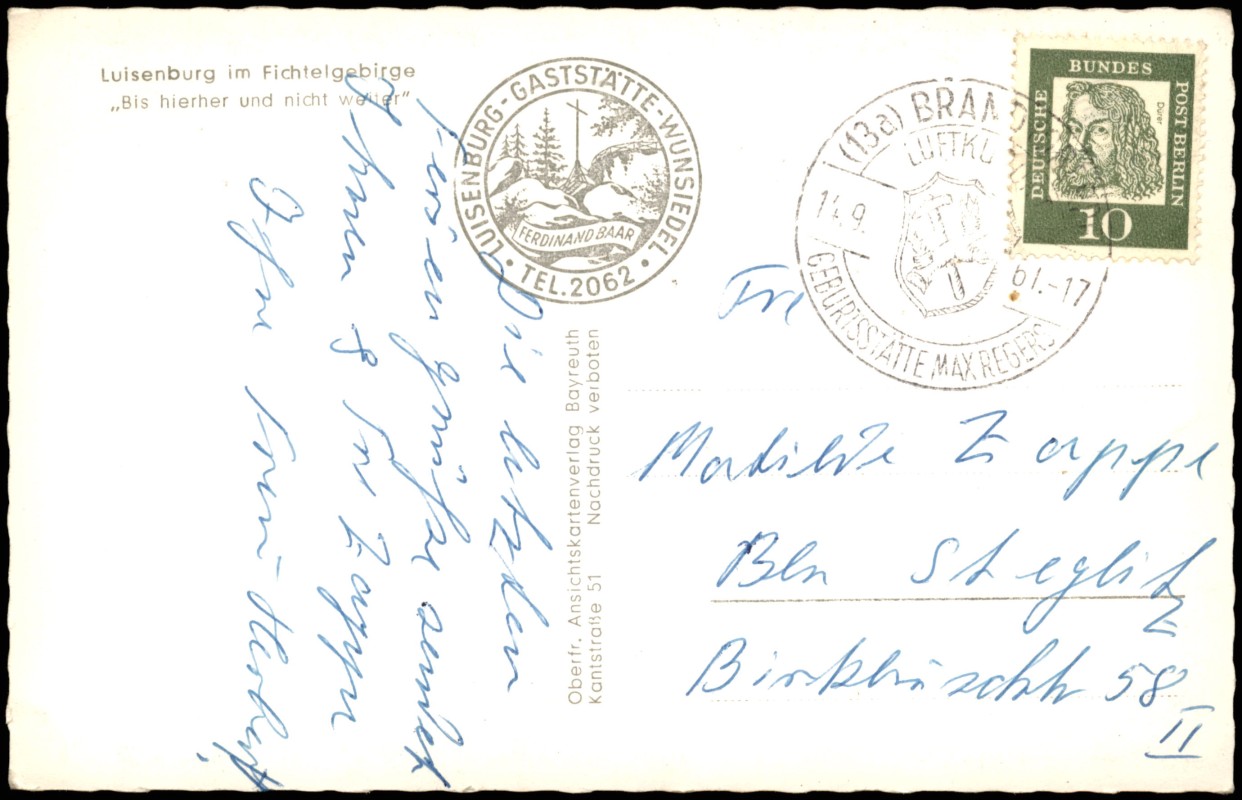 Luisenburg im Fichtelgebirge
„Bis hierher und nicht weiter"
LUISENBURG-GASTSTÄTTE-WUNSIEDEL
FERDINAND BAAR
• TEL. 2062 •
(13a) BRAND
LUFTKU
14.9. 61.-17
GEBURTSSTÄTTE MAX REGERS
DEUTSCHE BUNDES POST BERLIN
Dürer
10
Die letzten
Grüße sendet
Ihnen Zappe
Oberfr. Ansichtskartenverlag Bayreuth
Kantstraße 51 Nachdruck verboten
Fre
Matilde Zappe
Bln Steglitz
Birkbuschstr 58
II